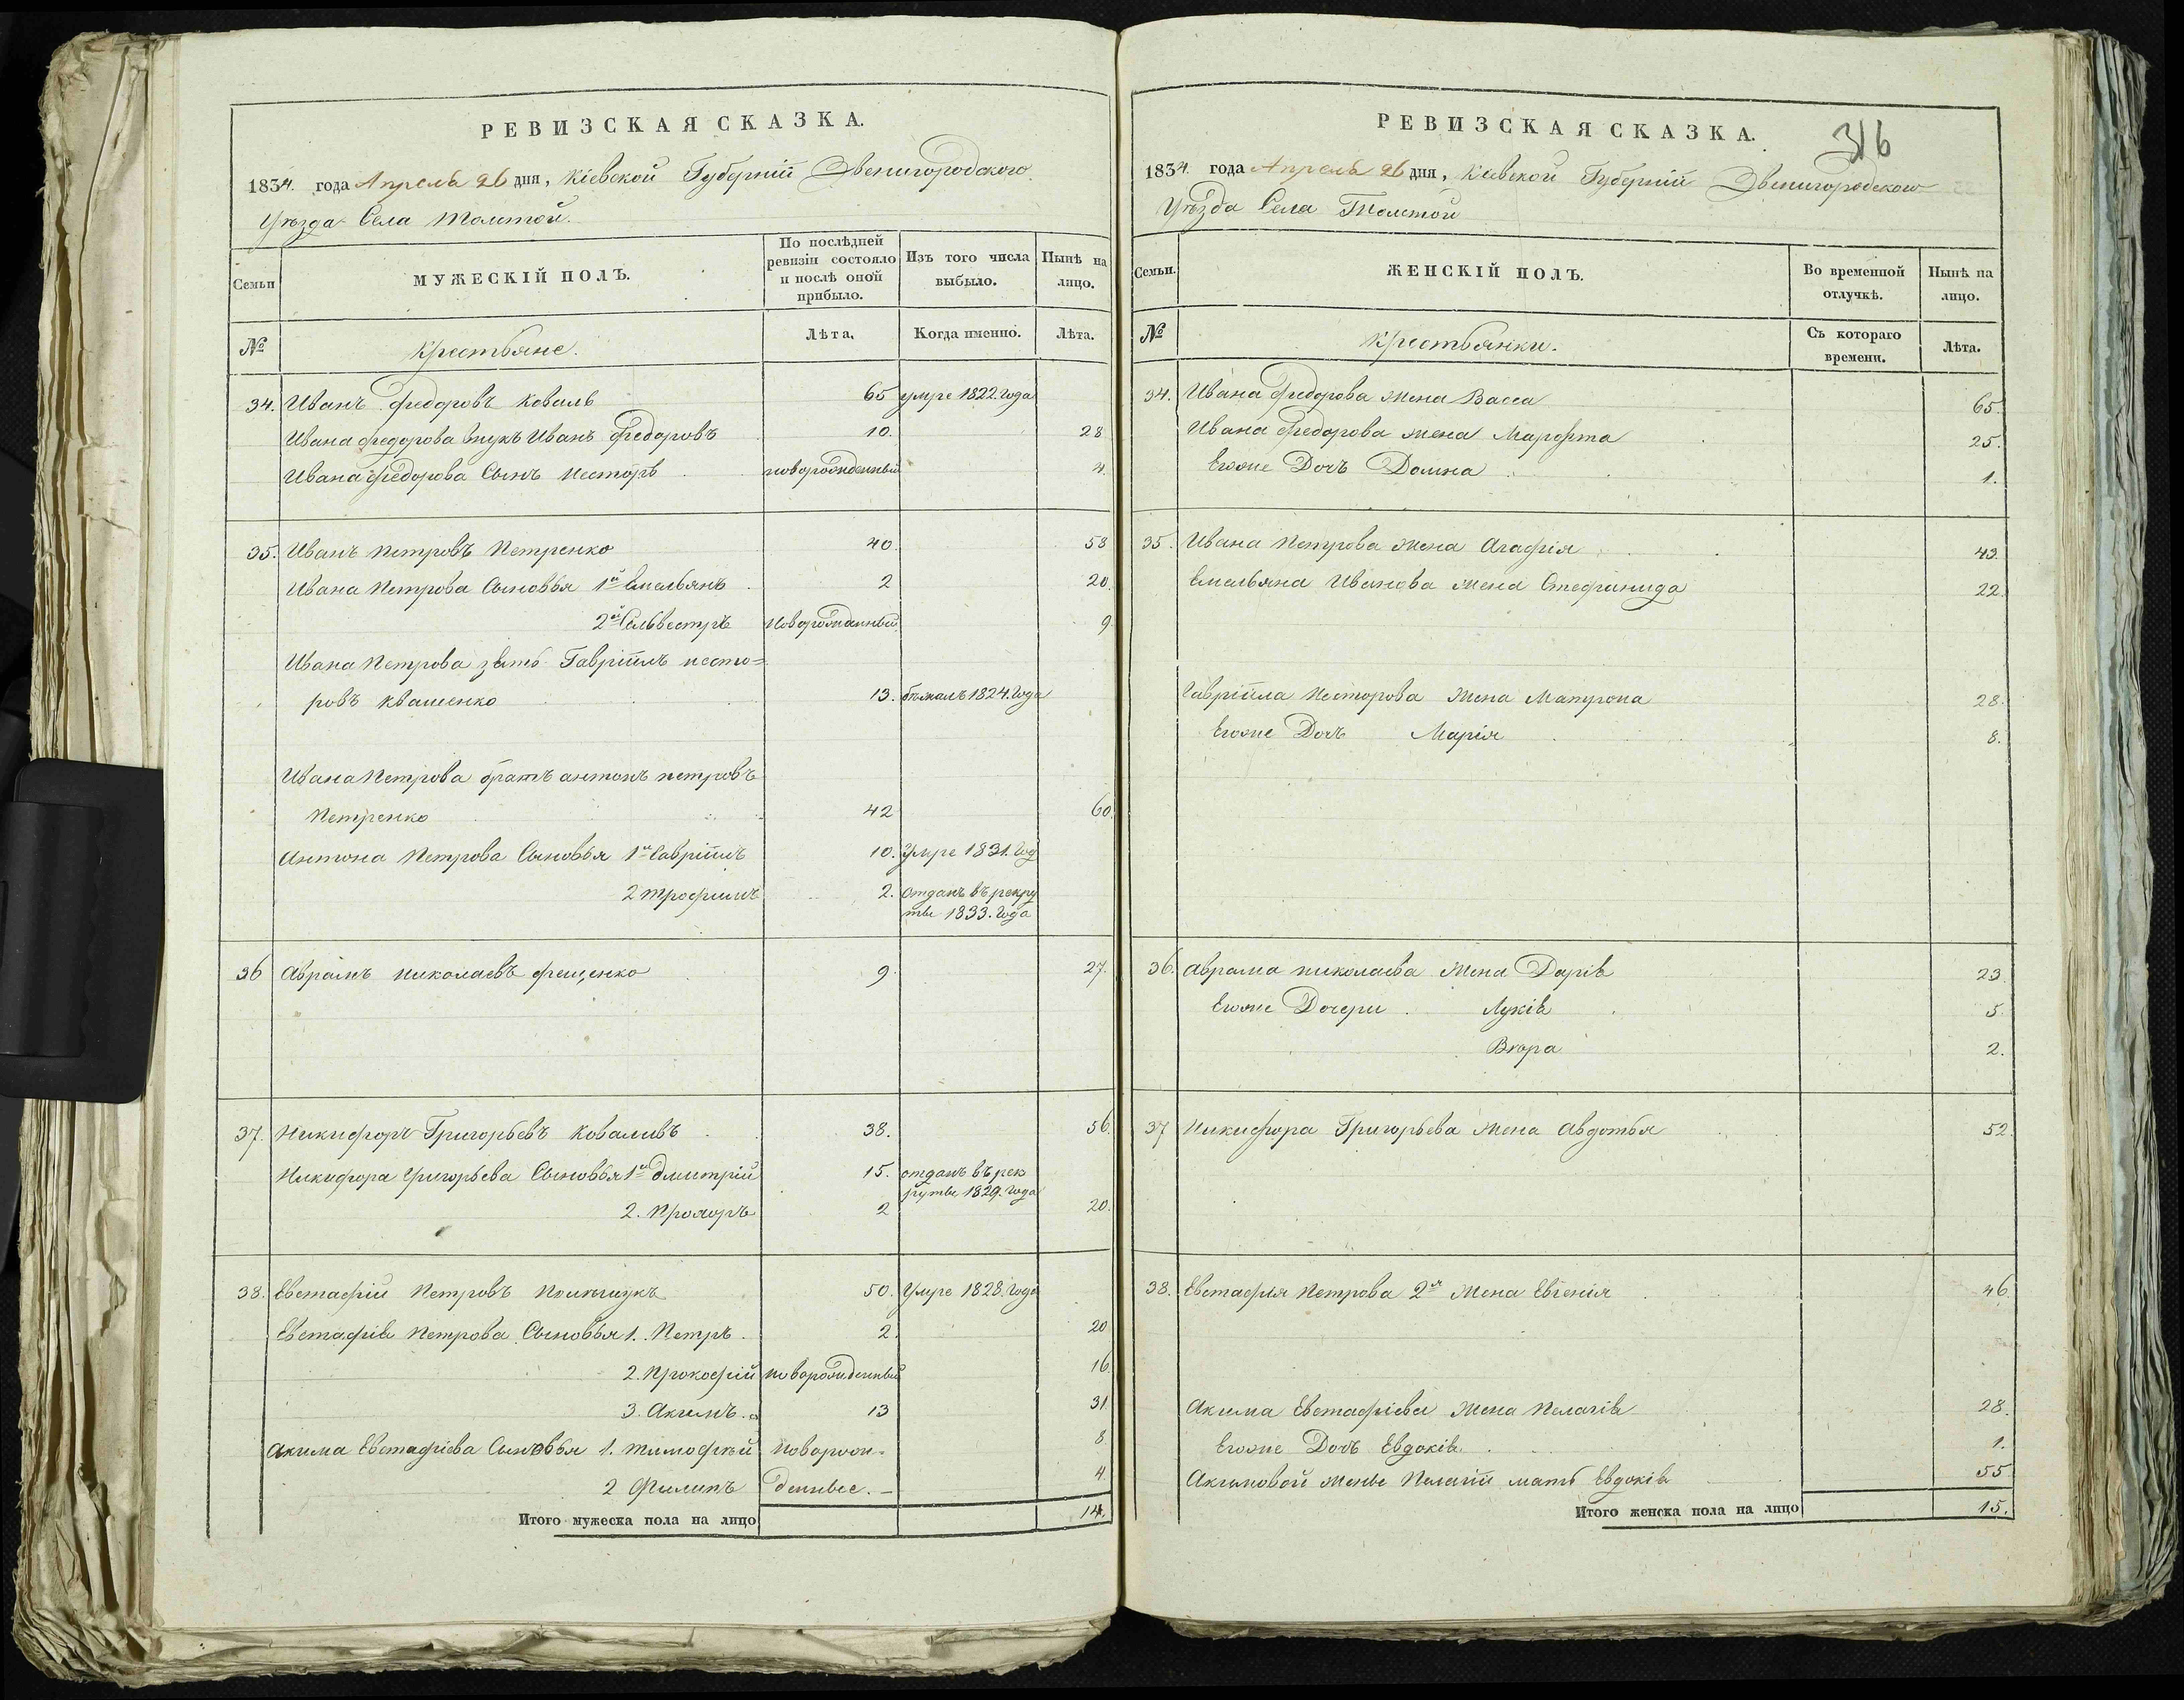 РЕВИЗСКАЯ СКАЗКА.
1834. года Апреля 26 дня, Кіевской Губерніи Звенигородского
Уѣзда Села Толстой.
Семьи
МУЖЕСКІЙ ПОЛЪ.
По послѣдней ревизіи состояло и послѣ оной прибыло.
Изъ того числа выбыло.
Нынѣ на лицо.
№
Крестьяне.
Лѣта.
Когда именно.
Лѣта.
34. Иванъ Федоровъ Коваль 65 умре 1822. Года
Ивана Федорова внукъ Иванъ Федоровъ 10. 28
Ивана Федорова Сынъ Несторъ новорожденный 4.
35. Иванъ Петровъ Петренко 40. 58
Ивана Петрова Сыновья 1й Емельянъ 2 20.
2й Сельвестръ Новорожденный 9.
Ивана Петрова зять Гавріилъ Несто=
ровъ Квашенко 13. бѣжалъ 1824. Года
Ивана Петрова братъ антонъ петровъ
Петренко 42 60.
Антона Петрова Сыновья 1й Гавріилъ 10. Умре 1831. Год
2 Трофимъ 2. Отданъ въ рекру
ты 1833. Года
36 Аврамъ Николаевъ Фещенко 9. 27.
37. Никифоръ Григорьевъ Коваливъ 38. 56.
Никифора Григорьева Сыновья 1й Дмитрій 15. отданъ въ рек
руты 1829. Года
2. Прохоръ 2 20.
38. Евстафій Петровъ Полищукъ 50. Умре 1828. Года
Евстафія Петрова Сыновья 1. Петръ 2. 20
2. Прокофій новорожденный 16.
3. Акимъ 13 31
Акима Евстафіева Сыновья 1. Тимофѣй новорож= 8
2 Филипъ денные. 4.
Итого мужеска пола на лицо 14.
316
РЕВИЗСКАЯ СКАЗКА.
1834 года Апреля 26 дня, Кіевской Губерніи Звенигородского
Уѣзда Села Толстой
Семьи.
ЖЕНСКІЙ ПОЛЪ.
Во временной отлучкѣ.
Нынѣ на лицо.
№
Крестьянки.
Съ котораго времени.
Лѣта.
34. Ивана Федорова Жена Васса 65.
Ивана Федорова жена Марфта 25.
Егоже Дочъ Домна 1.
35. Ивана Петрова Жена Агафія 43.
Емельяна Иванова жена Стефанида 22
Гавріила Несторова Жена Матрона 28.
Егоже Дочъ Марія 8.
36. Аврама Николаева Жена Дарія 23.
Егоже Дочери Лукія 5.
Вѣра 2.
37 Никифора Григорьева Жена Авдотья 52
38. Евстафія Петрова 2я Жена Евгенія 46
Акима Евстафіева Жена Пелагія 28.
Егоже Дочъ Евдокія 1.
Акимовой жены Пелагіи мать Евдокія 55
Итого женска пола на лицо 15.